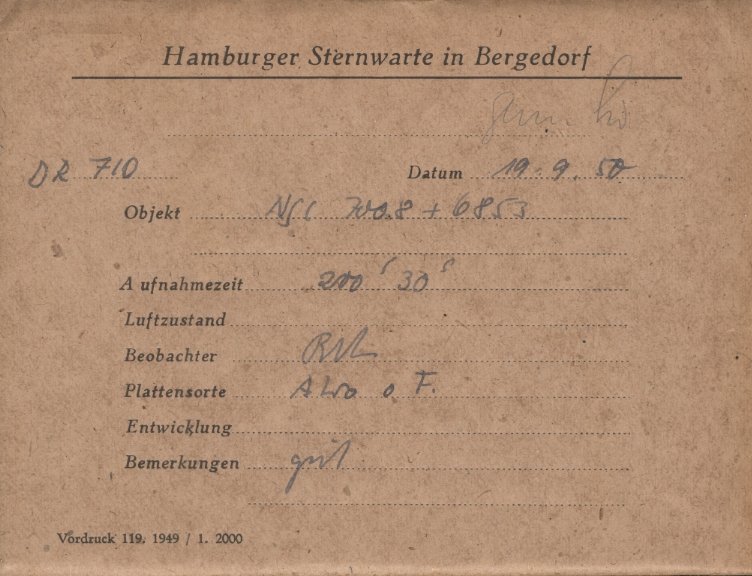 Hamburger Sternwarte in Bergedorf
DR 710 Datum 19. 9. 50
Objekt NGC 700.8 + 6853
Aufnahmezeit 200 s 30 s
Luftzustand
Beobachter
Plattensorte o F.
Entwicklung
Bemerkungen gut
Vordruck 119. 1949 / 1. 2000